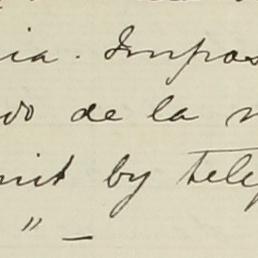 ia. Impos
do de la
mit by tele
" —